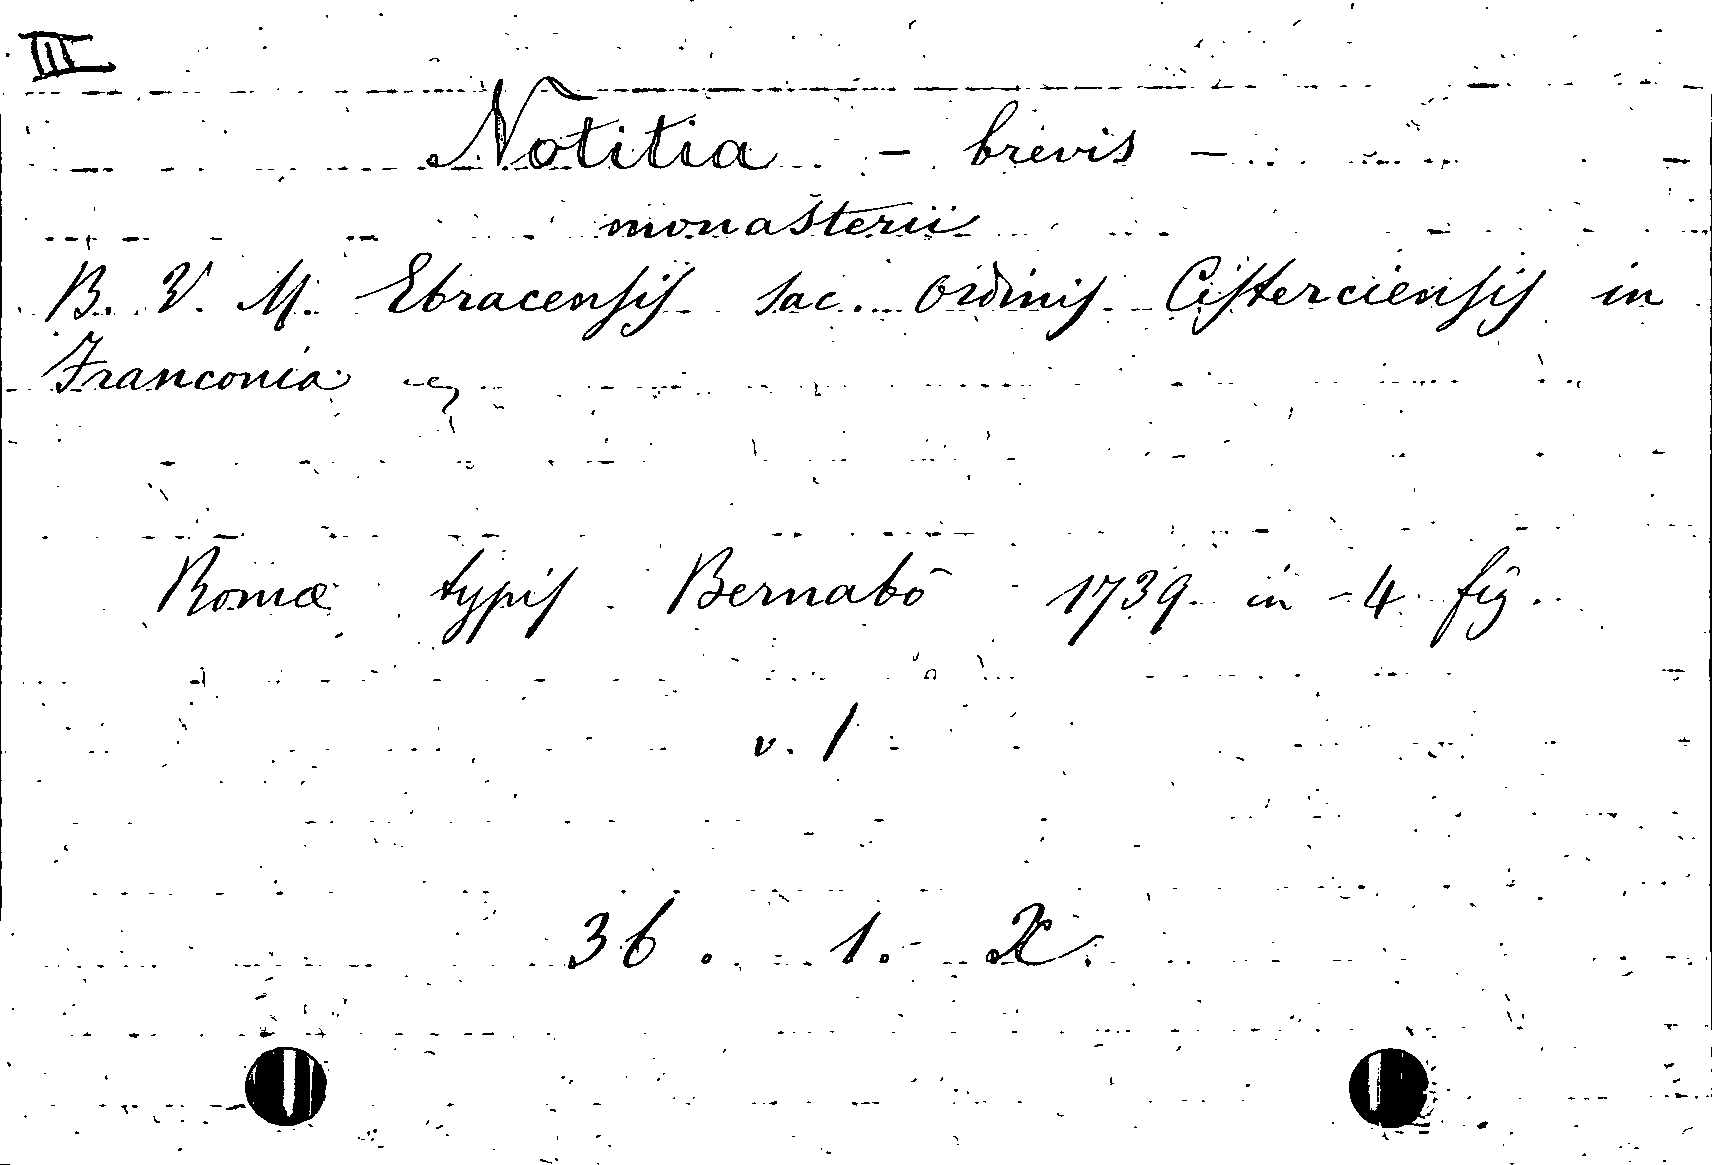 III
Notitia - brevis -
monasterii
B. V. M. Ebracensis sac. Ordinis Cisterciensis in
Franconia
Romæ typis Bernabò 1739 in-4 fig.
v. 1
36. 1. X.